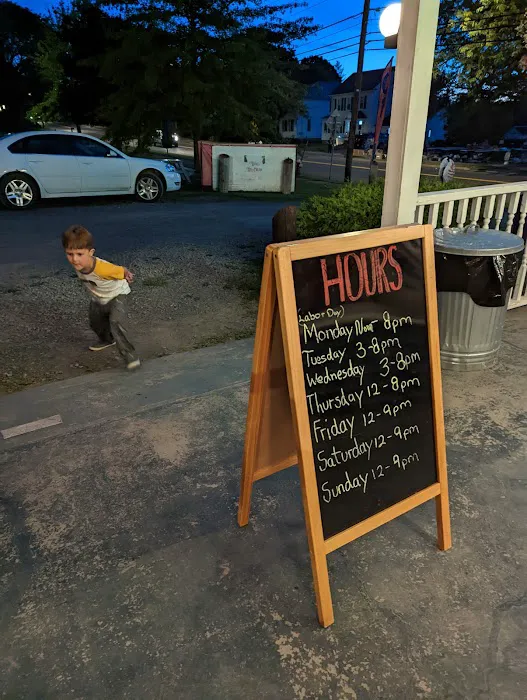 HOURS
(Labor Day)
Monday Noon - 8pm
Tuesday 3-8pm
Wednesday 3-8pm
Thursday 12-8pm
Friday 12-9pm
Saturday 12-9pm
Sunday 12-9pm